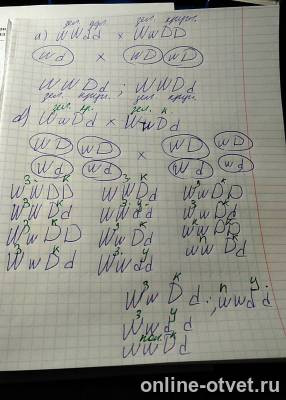 зел. удл. зел. кругл.
а) WWdd × WwDD
Wd × WD wD
WWDd ; WwDd
зел. кругл. зел. кругл.
б) зел. кр. зел. к.
WwDd × WwDd
WD wD × WD wD
Wd wd Wd wd
З К З К З К
WWDD WWDd WwDD
З К З У З К
WWDd WWdd WwDd
З К З К З К
WwDD WwDd wwDD
З К З У п К
WwDd Wwdd wwDd
З К п У
WwDd ; wwdd
З У
Wwdd
wwDd
online-otvet.ru